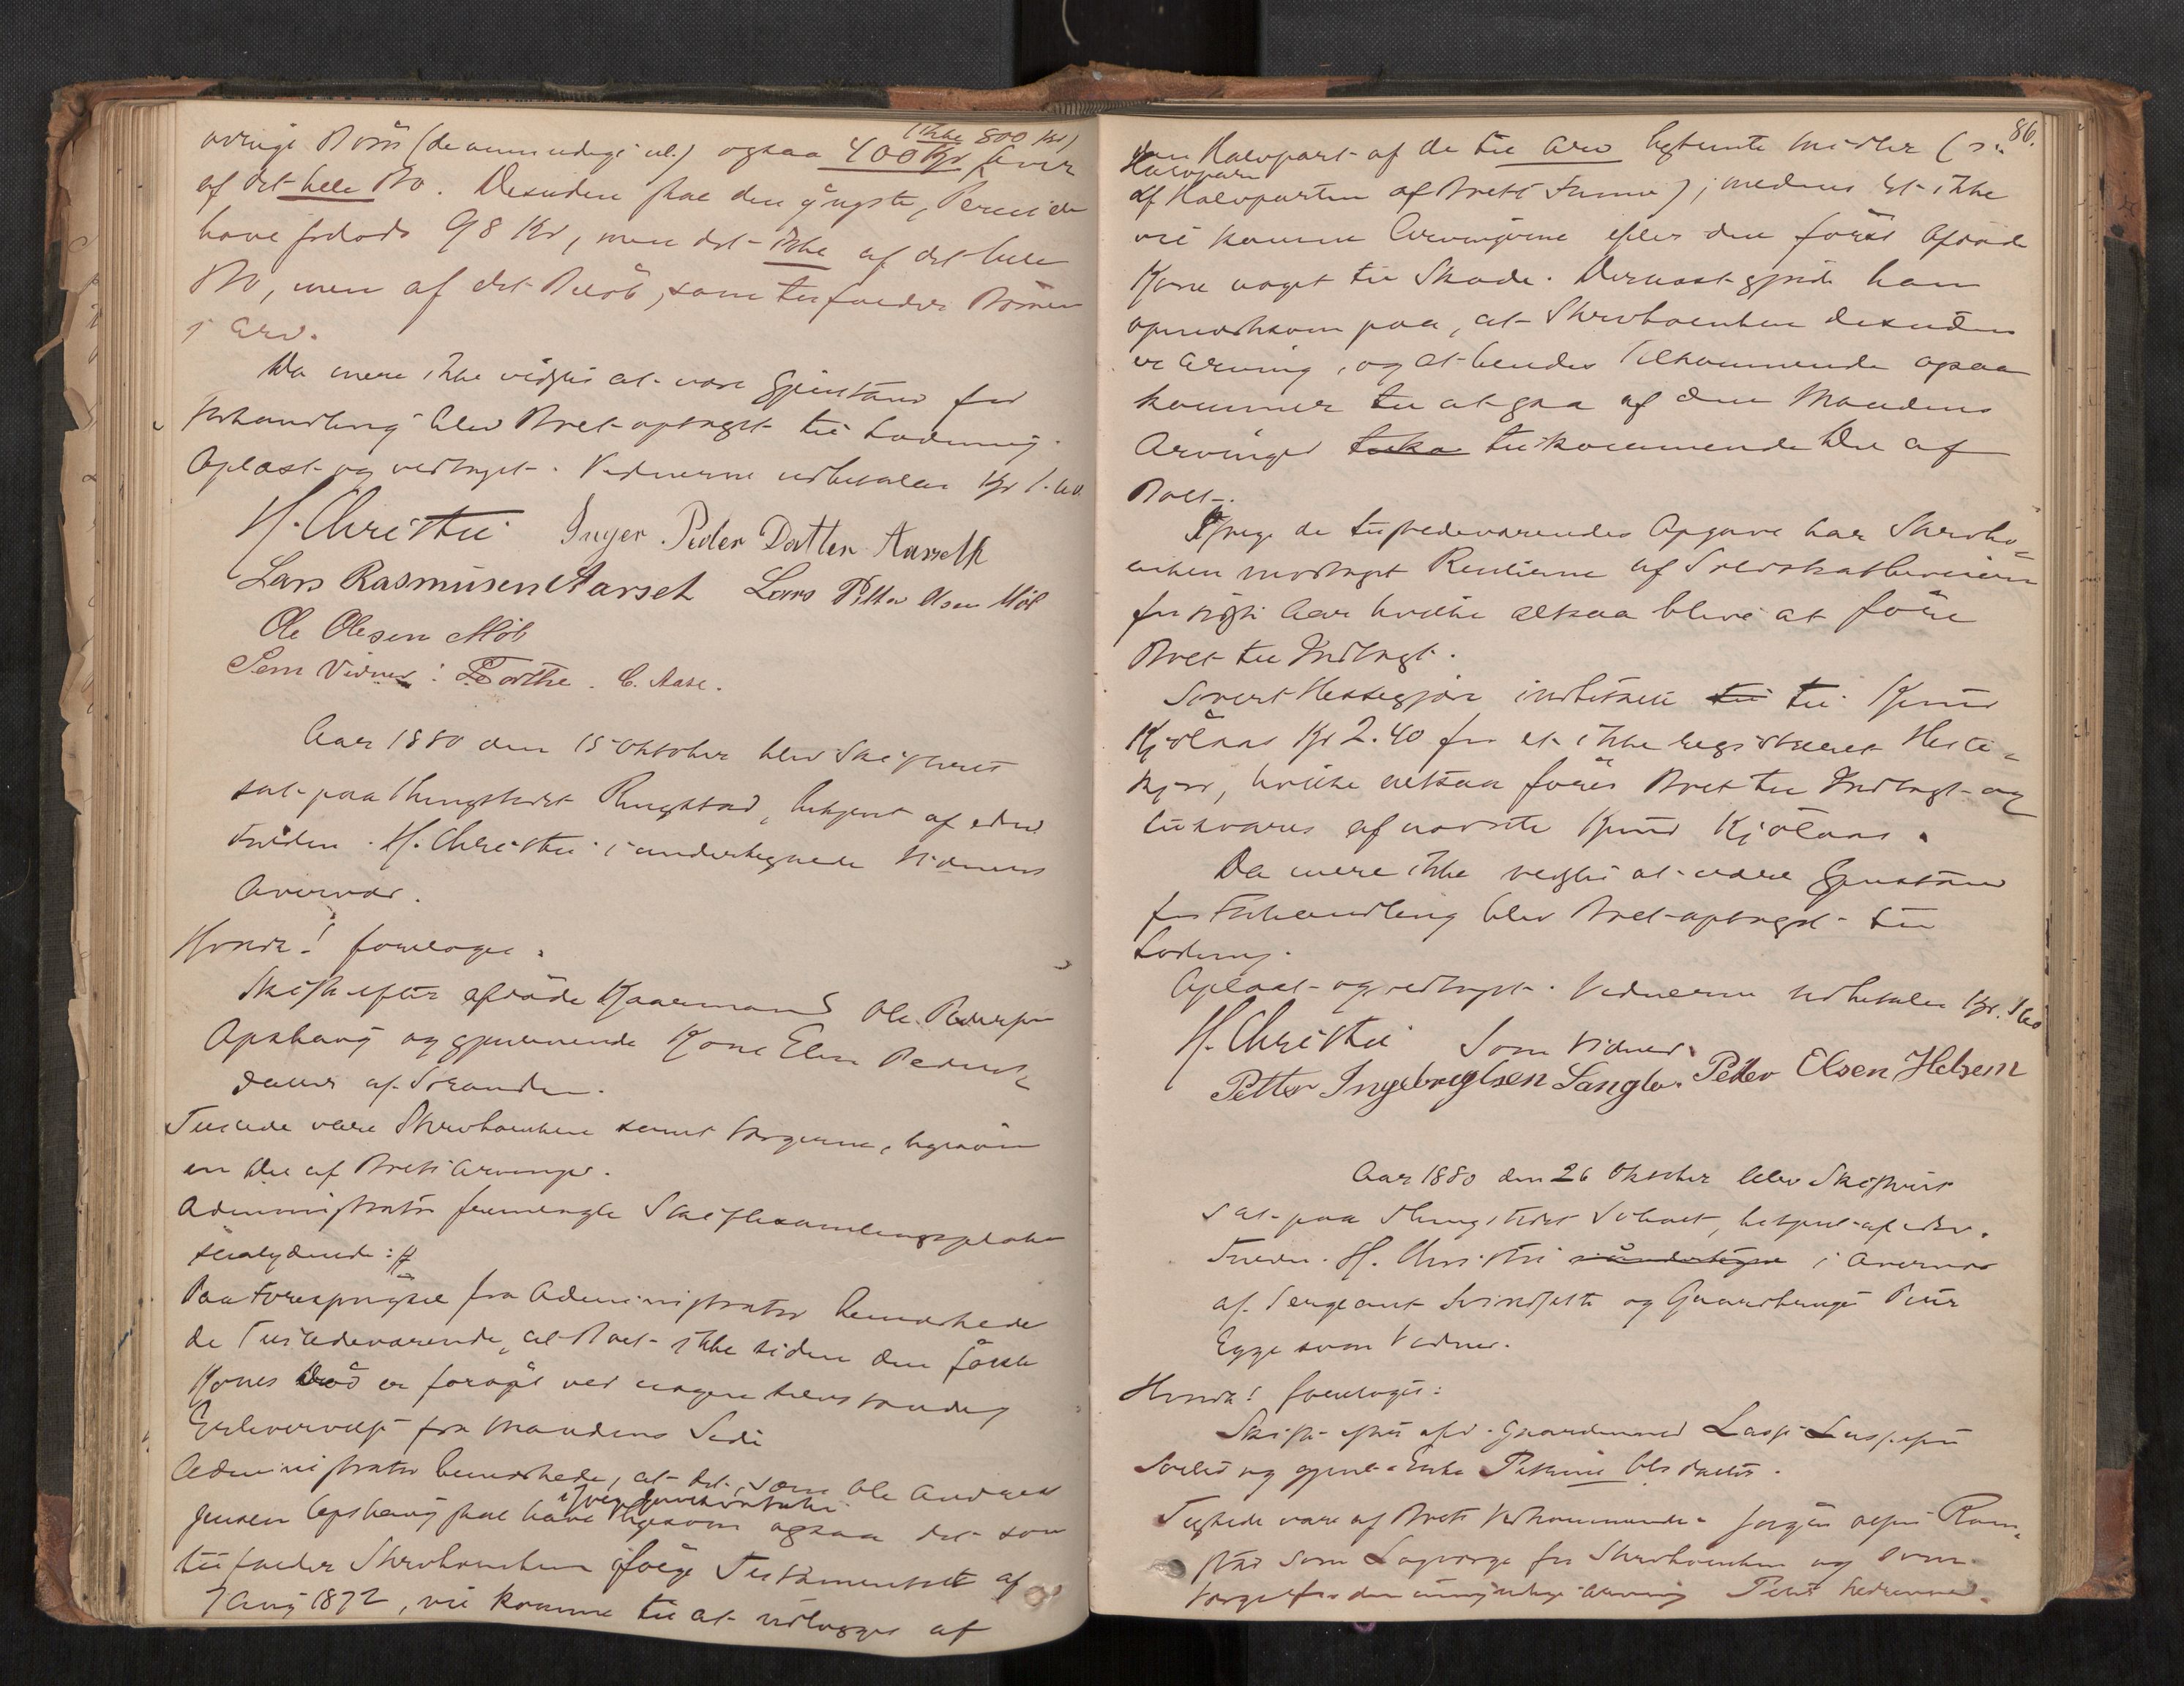 (ikke 800 Kr)
øvrige Børn (de unmyndige al.) ogsaa 400 Kr hver
af det hele Bo. Desuden skal den yngste, Pernide
have forlods 98 Kr, men det ikke af det hele
Bo, men af det Beløb, som tilfalder Børnene
i Arv.
Da mere ikke vidstes at være Gjenstand for
Forhandling blev Boet optaget til Lodning.
Oplæst og vedtaget. Vidnerne udbetales Kr 1.60.
H. Christie Inger Peder Datter Aarseth
Lars Rasmusen Aarset Lars Petter Olsen Møl
Ole Olesen Møl
Som Vidner: C. Aase.
Aar 1880 den 15 Oktober blev Skifteret
sat paa Thingstedet Ringstad, betjent af edsv.
Fuldm. H. Christie i undertegnede Vidners
Overvær.
Hvorda! foretoges:
Skifte efter afdøde Kaarmand Ole Pedersen
Opshaug og gjenlevende Kone Elen Peders
datter af Stranden.
Tilstede vare Stervboenken samt Værgerne, ligesom
en Del af Boets Arvinger.
Administrator fremlagde Skiftesamlingsplakat
saalydende: #
Paa Forespørgsel fra Administrator bemærkede
de Tilstedeværende, at Boet ikke siden den første
Kones Død er forøget ved nogen
Erhvervelse fra Mandens Side
Administrator bemærkede, at det, som Ole Andreas
Jensen Opshaug skal have ligesom ogsaa det som
tilfalder Stervboenken ifølge Testamentet af
7 Aug 1872, vil komme til at udlægges af
86.
den Halvpart af de til Arv bestemte Midler (o:
Halvparten
af Halvparten af Boets Sum); medens det ikke
vil komme Arvingerne efter den først afdøde
Kone noget til Skade. Dernæst gjorde han
opmærksom paa, at Stervboenken desuden
er Arving, og at hendes Tilkommende ogsaa
kommer til at gaa af den Mandens
Arvinger tilko tilkommende Del af
Boet.
Ifølge de tilstedeværendes Opgave har Stervbo-
enken modtaget Renterne af
for Aar hvilke altsaa blive at føre
Boet til Indtægt.
Sivert Hessegjær indbetalte til til Knud
Kjølaas Kr 2.40 for et ikke registreret Heste-
kjør, hvilke altsaa føres Boet til Indtægt og
tilsvares af nævnte Knud Kjølaas.
Da mere ikke vidstes at være Gjenstand
for Forhandling blev Boet optaget til
Lodning.
Oplæst og vedtaget. Vidnerne udbetales Kr. 1.60
H. Christie Som Vidner:
Petter Ingebrigtsen Langlo. Petter Elsen Helsem
Aar 1880 den 26 Oktober blev Skifteret
sat paa Thingstedet Soholt, betjent af edsv.
Fuldm. H. Christie i undertegne i Overvær
af Sergeant og Gaardbruger Peter
Egge som Vidner.
Hvorda! foretoges:
Skifte efter afd. Gaardmand Lasse Lassesen
og gjenl. Enke Petrine Olsdatter.
Tilstede vare af Boets Vedkommende Jørgen Olsen Ram-
stad som Lagværge for Stervboenken og
Værge for den umyndige Arving Peter